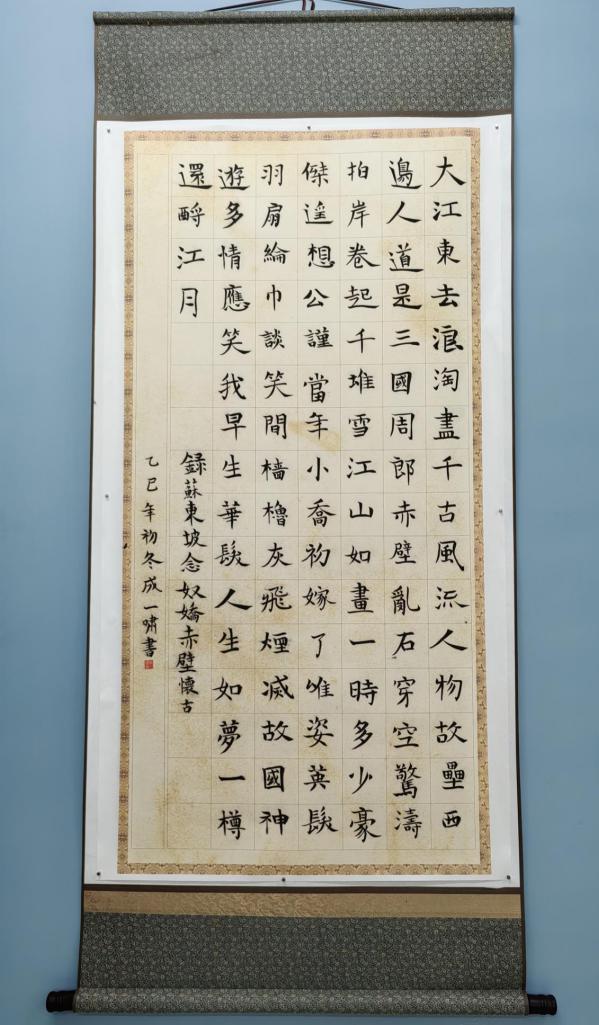 大江東去浪淘盡千古風流人物故壘西
邊人道是三國周郎赤壁亂石穿空驚濤
拍岸卷起千堆雪江山如畫一時多少豪
傑遙想公謹當年小喬初嫁了唯姿英髮
羽扇綸巾談笑間檣櫓灰飛煙滅故國神
遊多情應笑我早生華髮人生如夢一樽
還酹江月
錄蘇東坡念奴嬌赤壁懷古
乙巳年初冬成一嘯書